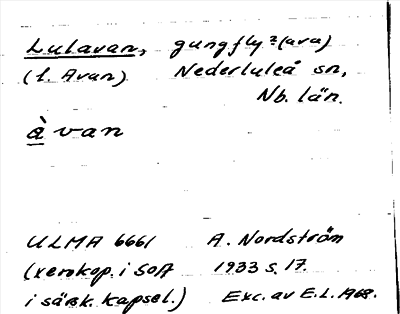 Lulavan, gungfly? (ava)
(l. Avan) Nederluleå sn,
Nb. län.
àvan
ULMA 6661 A. Nordström
(xerokop. i SOA 1933 s. 17.
i särsk. kapsel.) Exc. av E.L. 1968.